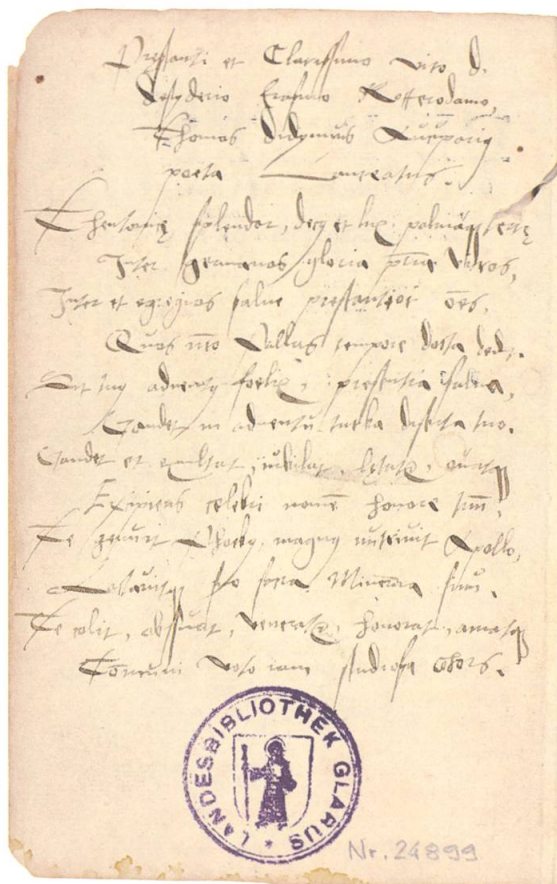 Prestanti et Clarissimo viro d.
Desyderio Erasmo Rotterodamo,
Thomas Didymus Aucuparius
poeta Laureatus.
Theutonicę splendor, decus et lux, palmaq; terrę
Inter germanos gloria prīa viros,
Inter et egregios salue prestantior oēs,
Quos nrō Pallas tempore docta dedit.
Sit tuus aduentus foelix, presentia salua,
Gaudet in aduentu turba diserta tuo.
Gaudet et exultat, iubilat, letatur, ouatq;
Excipiens celebri nomē honore tuū,
Te genuit Phoebus, magnus nutriuit Apollo,
Lactauitq; suo Minerua sinu.
Te colit, obseruat, veneratur, honorat, amatq;
Cōmuni voto iam studiosa cohors.
LANDESBIBLIOTHEK GLARUS
Nr. 24899